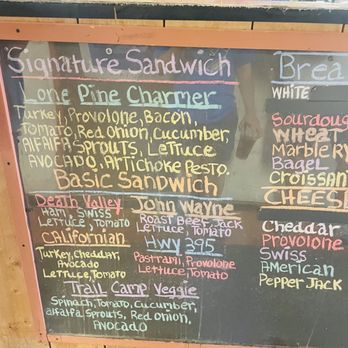 Signature Sandwich
Lone Pine Charmer
Turkey, Provolone, Bacon,
Tomato, Red Onion, Cucumber,
Alfalfa Sprouts, Lettuce
Avocado, Artichoke Pesto.
Basic Sandwich
Death Valley
Ham, Swiss
Lettuce, Tomato
Californian
Turkey, Cheddar,
Avocado
Lettuce, Tomato
John Wayne
Roast Beef, Jack
Lettuce, Tomato
Hwy 395
Pastrami, Provolone
Lettuce, Tomato
Trail Camp Veggie
Spinach, Tomato, Cucumber,
Alfalfa Sprouts, Red Onion,
Avocado
Brea
WHITE
Sourdoug
WHEAT
Marble Ry
Bagel
Croissant
CHEESE
Cheddar
Provolone
Swiss
American
Pepper Jack